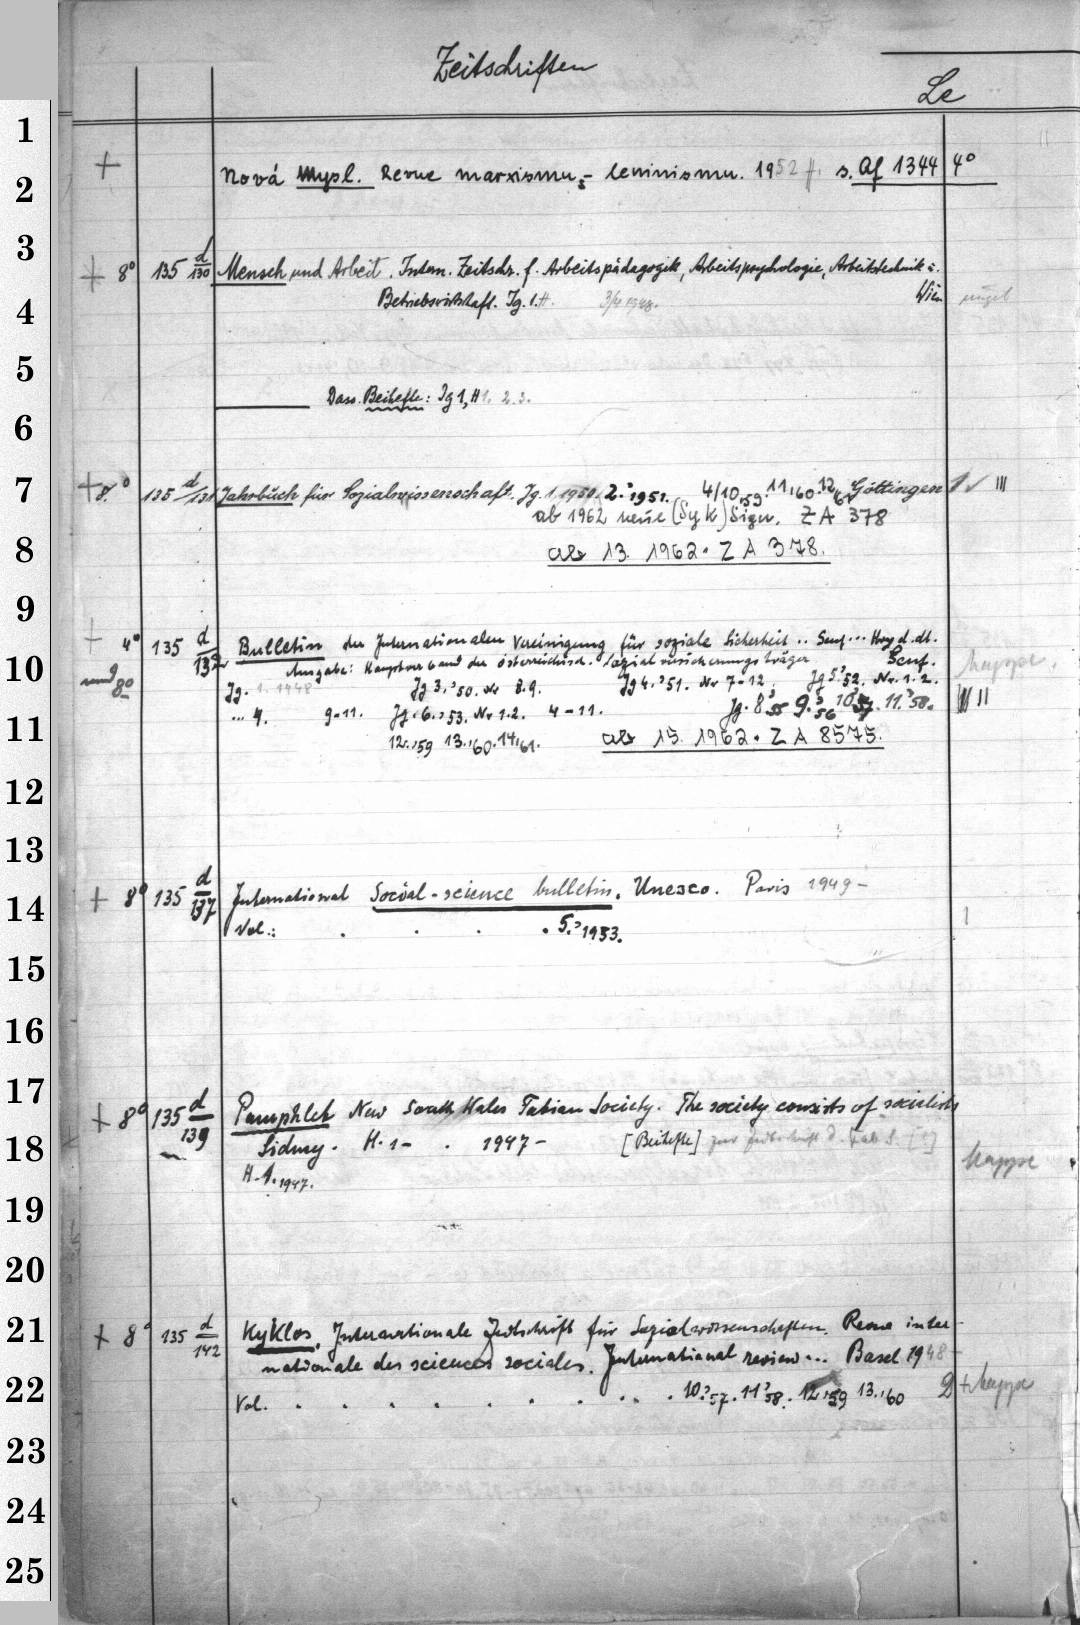 Zeitschriften
Le
1
+ Nová mysl. Revue marxismu-leninismu. 1952 ff. s. Af 1344 4°
2
3
+ 8° 135 d/130 Mensch und Arbeit. Intern. Zeitschr. f. Arbeitspädagogik, Arbeitspsychologie, Arbeitstechnik u.
Betriebswirtschaft. Jg. 1. H. 3/4 1948. Wien
4
5
Dass. Beihefte: Jg 1, H 1. 2. 3.
6
7 + 8° 135 d/131 Jahrbuch für Sozialwissenschaft. Jg. 1 1950, 2.'1951. 4/10,59. 11,'60. 12,'61 Göttingen
ab 1962 neue (Syk) Sign. ZA 378
8 ab 13. 1962. ZA 378.
9
+ 4° 135 d/132 Bulletin der Internationalen Vereinigung für soziale Sicherheit .. Genf... Hrsg. d. dt.
10 und 8° Ausgabe: Hauptverband der österreichisch. Sozialversicherungsträger Genf. Mappe.
Jg. 1. 1948 Jg 3,'50. Nr 8.9. Jg 4.'51. Nr 7-12. Jg 5.'52. Nr. 1.2.
... 4. 9-11. Jg. 6.'53. Nr 1.2. 4-11. Jg. 8'55 9.'56 10'57. 11.'58.
11 12.'59 13.'60. 14.'61. ab 15. 1962. ZA 8575.
12
13
14 + 8° 135 d/137 International Social-science bulletin. Unesco. Paris 1949-
Vol.: . . . . 5.'1953.
15
16
17
+ 8° 135 d/139 Pamphlet New South Wales Fabian Society. The society consists of socialists
18 Sidney. H. 1- . 1947- [Beihefte] Mappe
H. 1. 1947.
19
20
21 + 8° 135 d/142 Kyklos. Internationale Zeitschrift für Sozialwissenschaften. Revue inter-
nationale des sciences sociales. International review... Basel 1948-
22 Vol. . . . . . . . . . . 10.'57. 11'58. 12.'59 13.'60 + Mappe
23
24
25